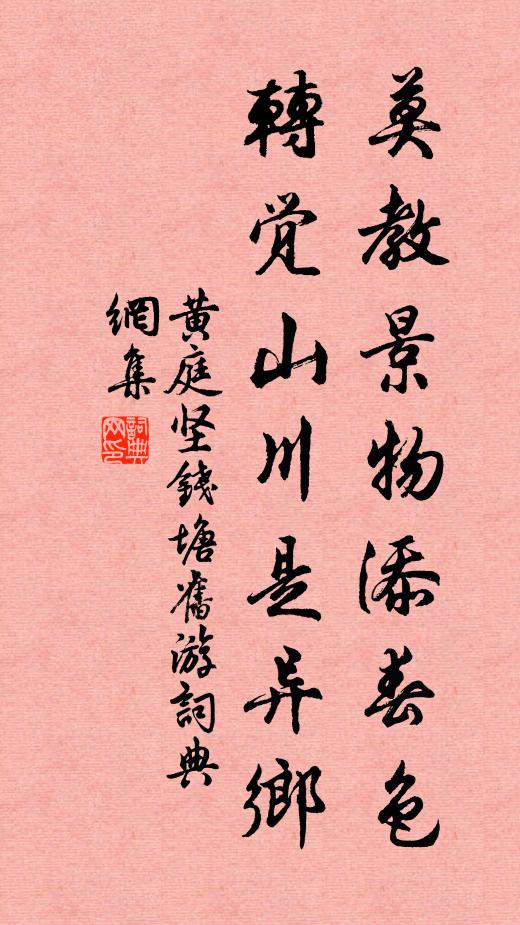 莫教景物添春色
轉觉山川是异鄉
黄庭坚錢塘舊游詞典
網集
詞典
网印